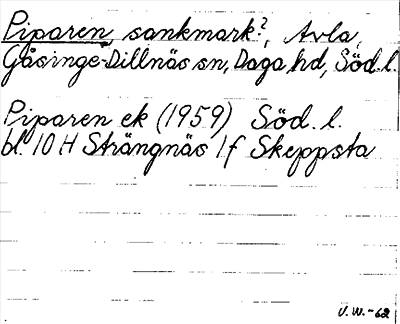 Piparen, sankmark?, Avla,
Gåsinge-Dillnäs sn, Daga hd, Söd. l.
Piparen ek (1959) Söd. l.
bl. 10 H Strängnäs 1 f Skeppsta
V. W. -62